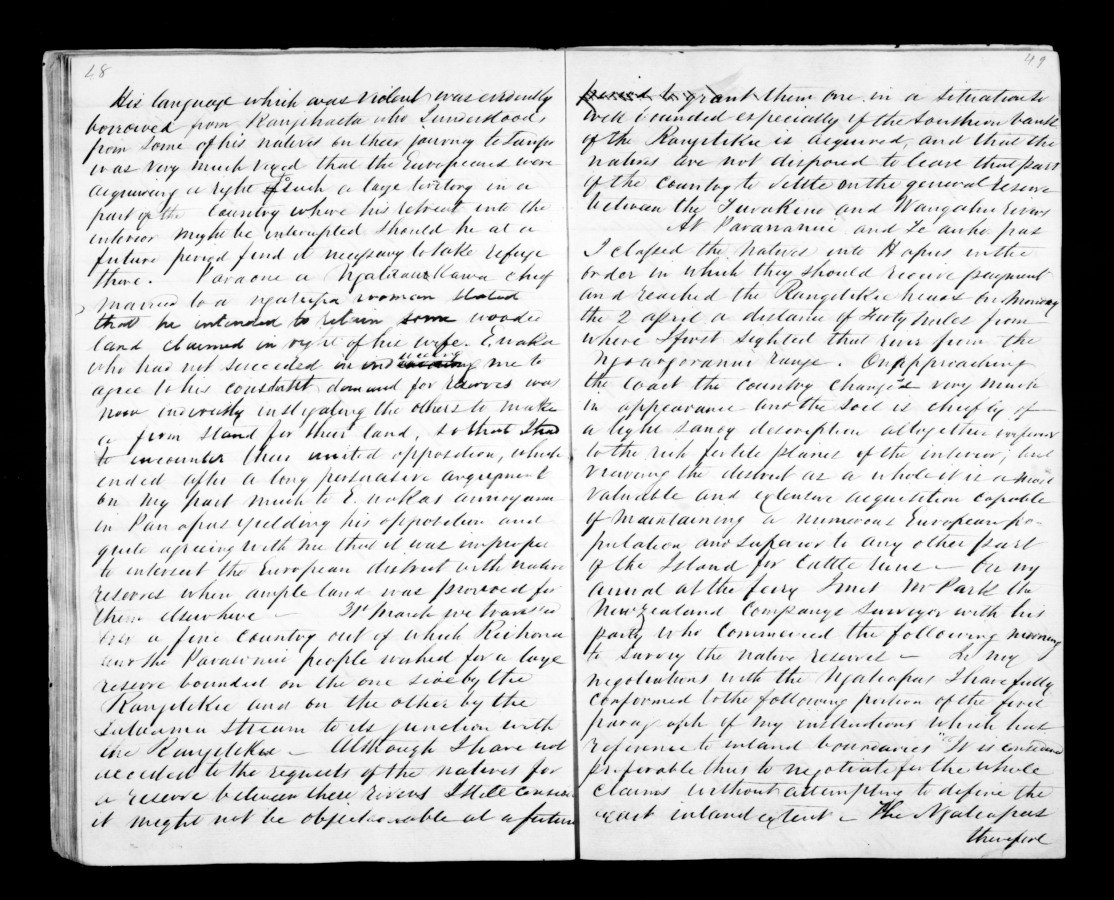 48
His language which was violent was evidently
borrowed from Rangihaeta who I understood
from some of his natives on their journey to
was very much vexed that the Europeans were
acquiring a right to such a large territory in a
part of the Country where his retreat into the
interior might be interrupted should he at a
future period find it necessary to take refuge
there. Paraone a Ngatiraukawa chief
married to a ngatiapa woman stated
that he intended to retain some wooded
land claimed in right of his wife. E. waka
who had not succeeded in inducing me to
agree to his constant demand for reserves was
now indirectly instigating the others to make
a firm stand for their land, so that I had
to encounter their united opposition, which
ended after a long persuasive argument
on my part much to E. wakas annoyance
in Panapas yielding his opposition and
quite agreeing with me that it was improper
to intersect the European district with native
reserves when ample land was provided for
them elsewhere — 31st March we travelled
over a fine country out of which
and the Parawanui people wished for a large
reserve bounded on the one side by the
Rangitikei and on the other by the
stream to its junction with
the Rangitikei — Although I have not
acceded to the requests of the natives for
a reserve between these rivers I still consider
it might not be objectionable at a future
49
period to grant them one in a situation so
well bounded especially if the Southern bank
of the Rangitikei is acquired, and that the
natives are not disposed to leave that part
of the country to settle on the general reserve
between the Turakina and Wangahu rivers
At Parawanui and Te awho pas
I classed the natives into Hapus in the
order in which they should receive payment
and reached the Rangitikei heads on Monday
the 2 april a distance of Forty miles from
where I first sighted that river from the
range. On approaching
the coast the country changes very much
in appearance and the soil is chiefly of
a light sandy description altogether inferior
to the rich fertile plains of the interior, but
viewing the district as a whole it is a most
valuable and extensive acquisition capable
of maintaining a numerous European po-
pulation and superior to any other part
of the Island for Cattle runs — On my
arrival at the ferry I met Mr Park the
New Zealand Companys surveyor with his
party who commenced the following morning
to survey the native reserves — In my
negotiations with the Ngatiapas I have fully
conformed to the following portion of the first
paragraph of my instructions which has
reference to inland boundaries "It is considered
preferable thus to negotiate for the whole
claims without attempting to define the
exact inland extent — The Ngatiapas
therefore